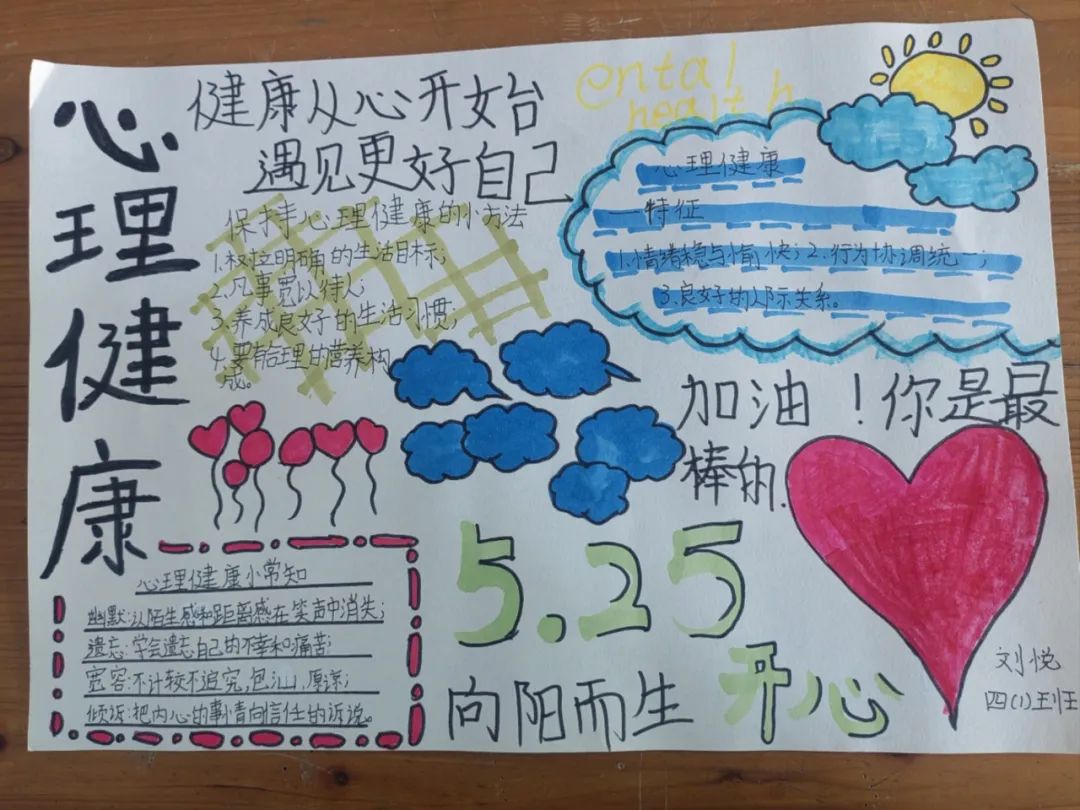 心理健康
健康从心开始
遇见更好自己
ental
health
保持心理健康的小方法
1.树立明确的生活目标;
2.凡事宽以待人;
3.养成良好的生活习惯;
4.要有合理的营养构
成。
心理健康
——特征
1.情绪稳与愉快;2.行为协调统一;
3.良好的人际关系。
加油!你是最
棒的.
5.25
向阳而生
开心
心理健康小常知
幽默:以陌生感和距离感在笑声中消失;
遗忘:学会遗忘自己的不幸和痛苦;
宽容:不计较不追究,包,原谅;
倾诉:把内心的事情向信任的诉说。
刘悦
四(1)